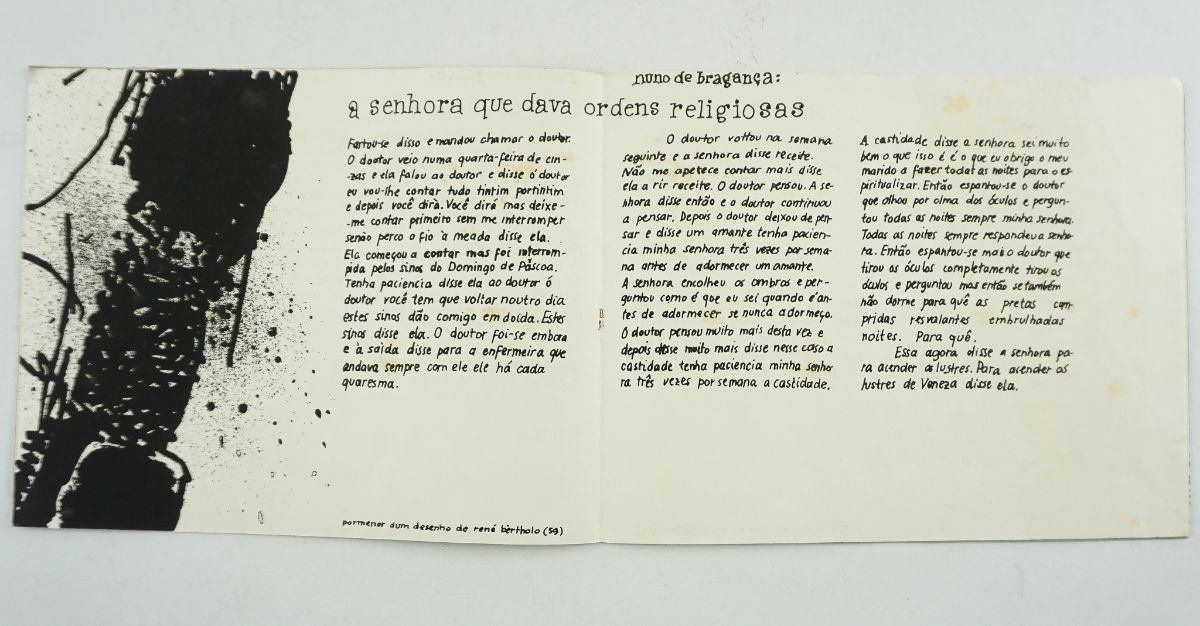 nuno de bragança:
a senhora que dava ordens religiosas
Fartou-se disso e mandou chamar o doutor.
O doutor veio numa quarta-feira de cin-
-zas e ela falou ao doutor e disse ó doutor
eu vou-lhe contar tudo tintim portintim
e depois você dirà. Você dirá mas deixe-
-me contar primeiro sem me interromper
senão perco o fio à meada disse ela.
Ela começou a contar mas foi interrom-
pida pelos sinos do Domingo de Páscoa.
Tenha paciencia disse ela ao doutor ó
doutor você tem que voltar noutro dia
estes sinos dão comigo em doida. Estes
sinos disse ela. O doutor foi-se embora
e à saída disse para a enfermeira que
andava sempre com ele ele há cada
quaresma.
O doutor voltou na semana
seguinte e a senhora disse receite.
Não me apetece contar mais disse
ela a rir receite. O doutor pensou. A se-
nhora disse então e o doutor continuou
a pensar. Depois o doutor deixou de pen-
sar e disse um amante tenha pacien-
cia minha senhora três vezes por sema-
na antes de adormecer um amante.
A senhora encolheu os ombros e per-
guntou como é que eu sei quando é an-
tes de adormecer se nunca adormeço.
O doutor pensou muito mais desta vez e
depois desse muito mais disse nesse caso a
castidade tenha paciencia minha senho-
ra três vezes por semana a castidade.
A castidade disse a senhora sei muito
bem o que isso é é o que eu obrigo o meu
marido a fazer todas as noites para o es-
piritualizar. Então espantou-se o doutor
que olhou por cima dos óculos e pergun-
tou todas as noites sempre minha senhora.
Todas as noites sempre respondeu a senho-
ra. Então espantou-se mais o doutor que
tirou os óculos completamente tirou os
óculos e perguntou mas então se também
não dorme para quê as pretas com-
pridas resvalantes embrulhadas
noites. Para quê.
Essa agora disse a senhora pa-
ra acender os lustres. Para acender os
lustres de Veneza disse ela.
pormenor dum desenho de rené bèrtholo (59)